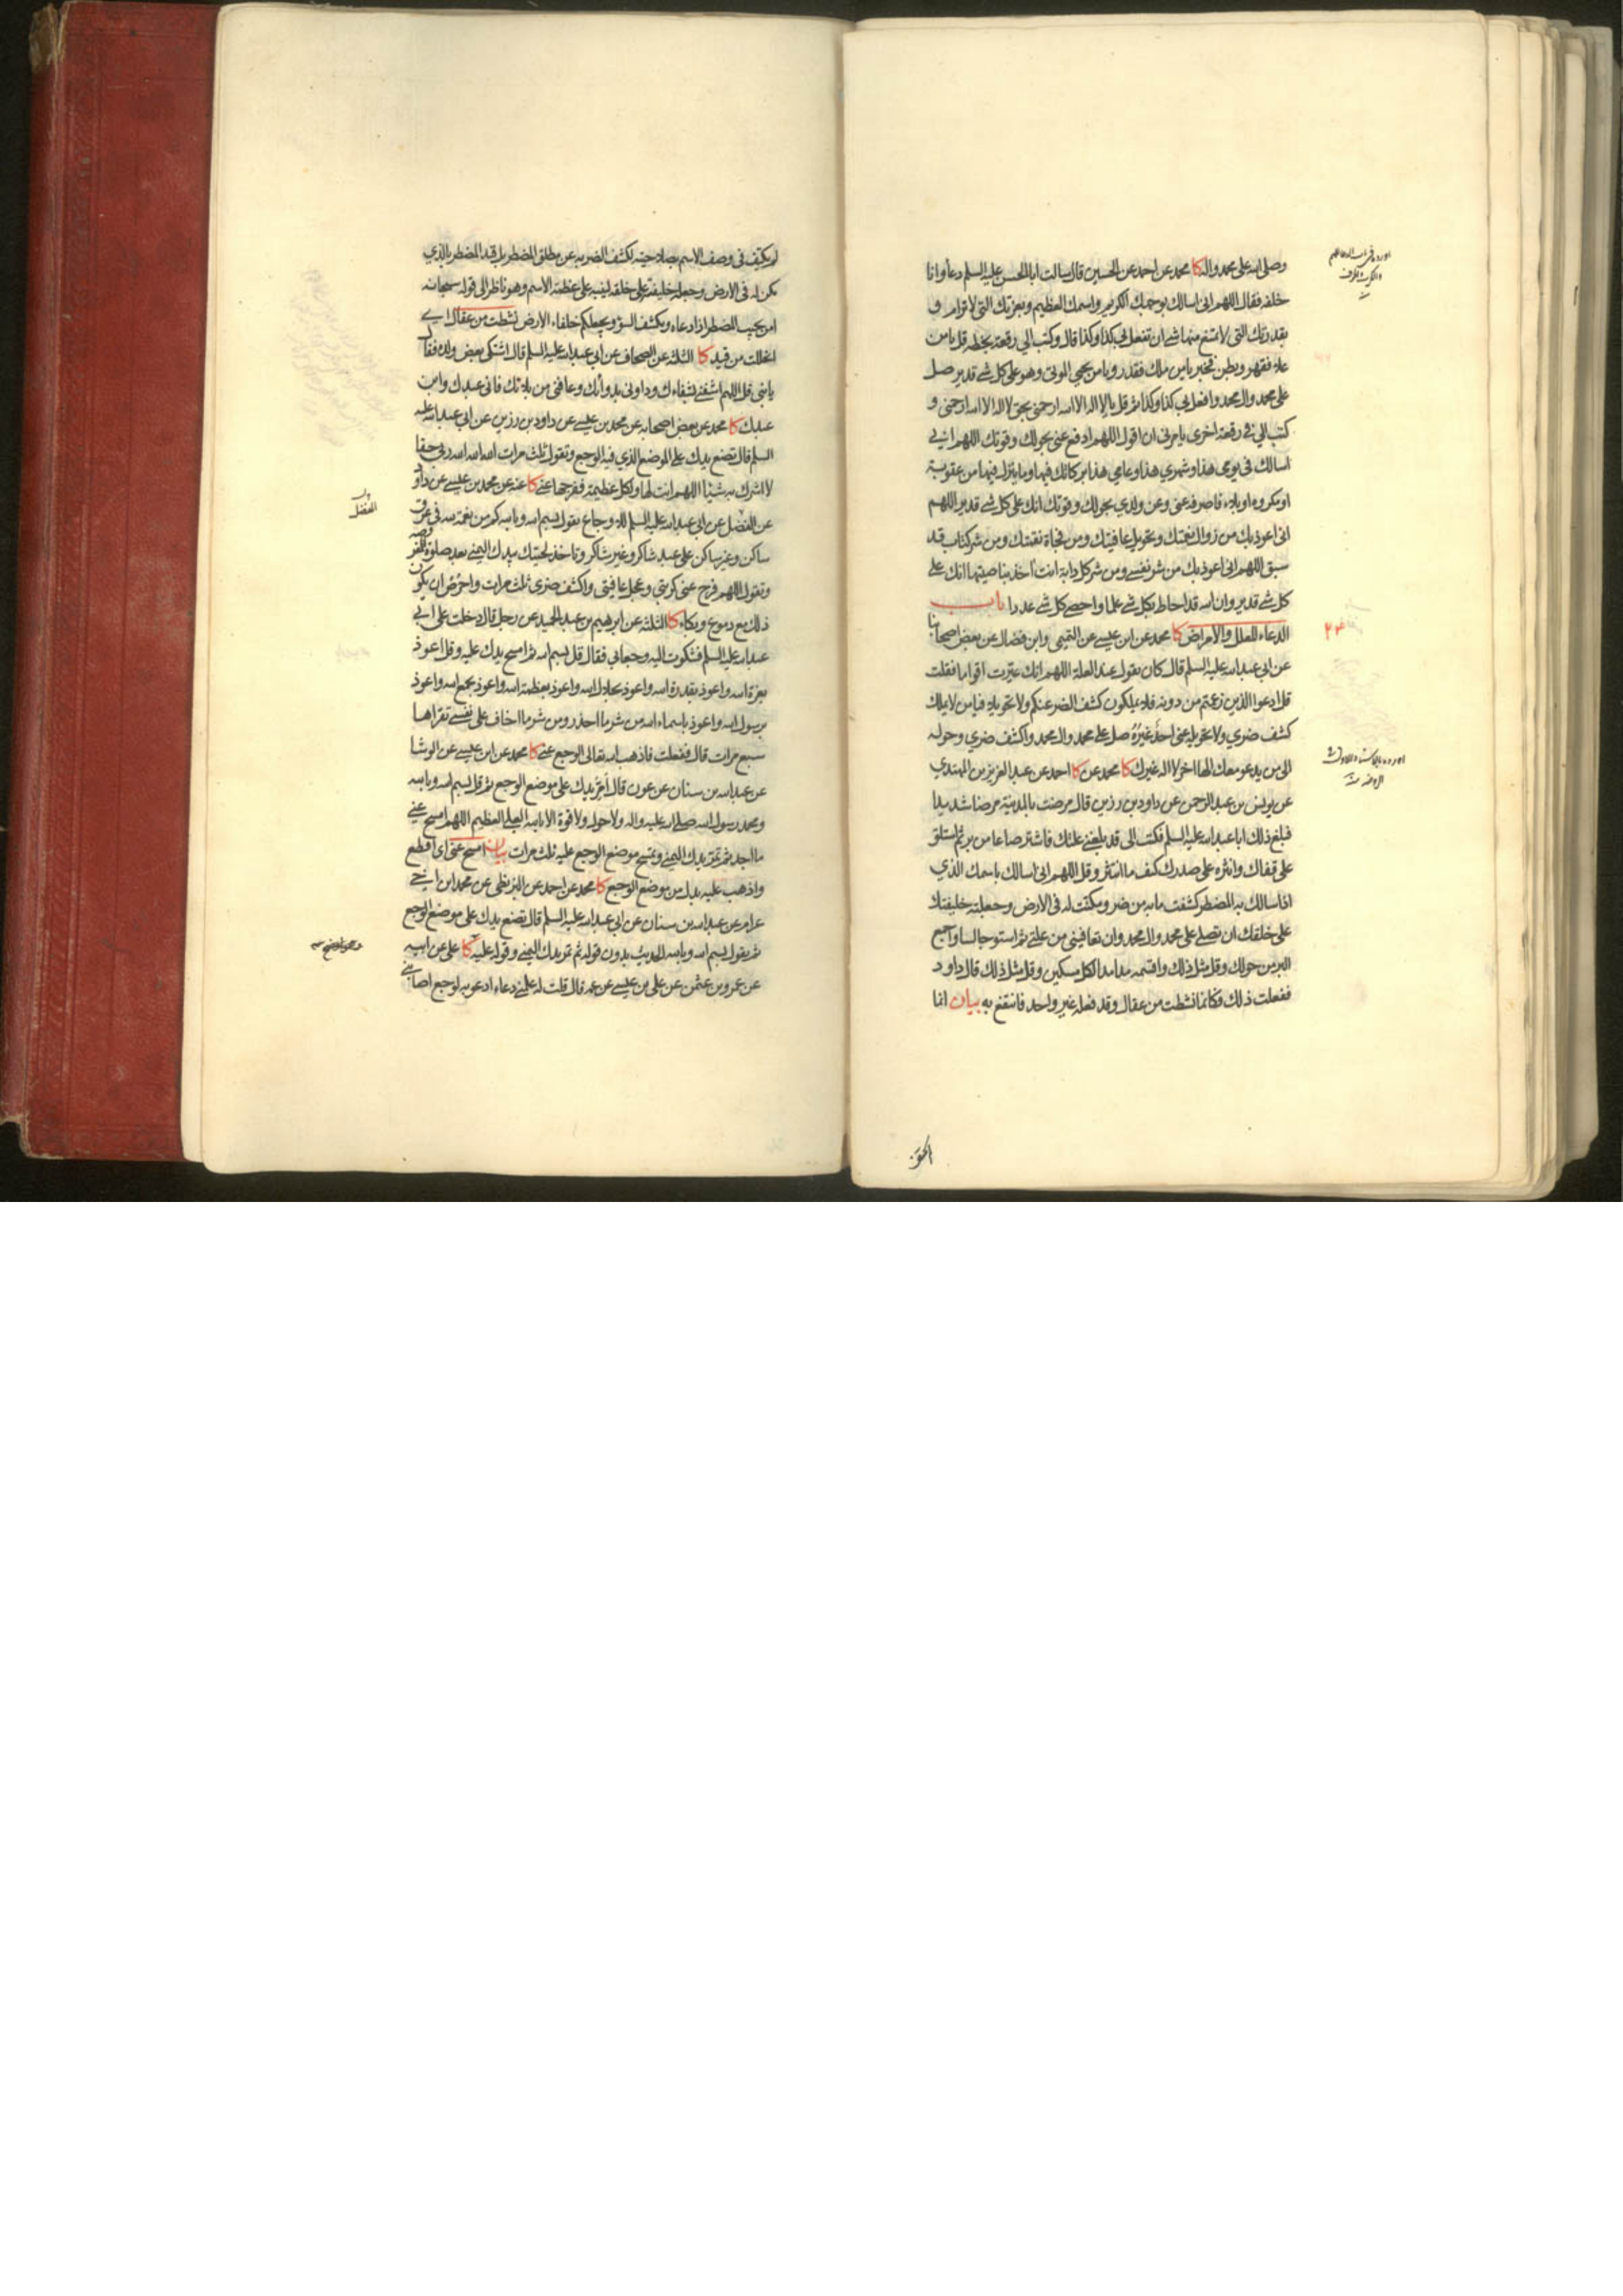 وصلى الله على محمد واله كا محمد عن احمد عن الحسين قال سالت ابا الحسن عليه السلم دعاء وانا
خلفه فقال اللهم اني اسالك بوجهك الكريم واسمك العظيم وبعزتك التي لا ترام و
بقدرتك التي لا يمتنع منها شي ان تفعل بي كذا وكذا قال وكتب الي رقعة بخطه قل يا من
علا فقهر وبطن فخبر يا من ملك فقدر ويا من يحيي الموتى وهو على كل شي قدير صل
على محمد وال محمد وافعل بي كذا وكذا ثم قل يا لا اله الا الله ارحمني بحق لا اله الا الله ارحمني و
كتب الي في رقعة اخرى يامرني ان اقول اللهم ادفع عني بحولك وقوتك اللهم اني
اسالك في يومي هذا وشهري هذا وعامي هذا بركاتك فيها وما ينزل فيها من عقوبة
او مكروه او بلاء فاصرفه عني وعن ولدي بحولك وقوتك انك على كل شي قدير اللهم
اني اعوذ بك من زوال نعمتك وتحويل عافيتك ومن فجاة نقمتك ومن شر كتاب قد
سبق اللهم اني اعوذ بك من شر نفسي ومن شر كل دابة انت اخذ بناصيتها انك على
كل شي قدير وان الله قد احاط بكل شي علما واحصى كل شي عددا باب
الدعاء للعلل والامراض كا محمد عن ابن عيسى عن التميمي وابن فضال عن بعض اصحابنا
عن ابي عبد الله عليه السلم قال كان يقول عند العلة اللهم انك عيرت اقواما فقلت
قل ادعوا الذين زعمتم من دونه فلا يملكون كشف الضر عنكم ولا تحويلا فيا من لا يملك
كشف ضري ولا تحويله عني احد غيره صل على محمد وال محمد واكشف ضري وحوله
الى من يدعو معك الها اخر لا اله غيرك كا محمد عن كا احمد عن عبد العزيز بن المهتدي
عن يونس بن عبد الرحمن عن داود بن رزين قال مرضت بالمدينة مرضا شديدا
فبلغ ذلك ابا عبد الله عليه السلم فكتب الى قد بلغني علتك فاشتر صاعا من بر ثم استلق
على قفاك وانثره على صدرك كيف ما انتثر وقل اللهم اني اسالك باسمك الذي
اذا سالك به المضطر كشفت ما به من ضر ومكنت له في الارض وجعلته خليفتك
على خلقك ان تصلي على محمد وال محمد وان تعافيني من علتي ثم استو جالسا واجمع
البر من حولك وقل مثل ذلك واقسمه مدا مدا لكل مسكين وقل مثل ذلك قال داود
ففعلت ذلك فكانما نشطت من عقال وقد فعله غير واحد فانتفع به بيان انما
٢٣٤
لم يكتف في وصف الاسم بصلاحيته لكشف الضر به عن مطلق المضطر بل قيد المضطر بالذي
مكن له في الارض وجعله خليفته على خلقه لينبه على عظمة الاسم وهو ناظر الى قوله سبحانه
امن يجيب المضطر اذا دعاه ويكشف السوء ويجعلكم خلفاء الارض نشطت من عقال اي
انحللت من قيد كا الثلثة عن الصحاف عن ابي عبد الله عليه السلم قال اشتكى بعض ولده فقال
يا بني قل اللهم اشفني بشفاءك وداوني بدوائك وعافني من بلائك فاني عبدك وابن
عبدك كا محمد عن بعض اصحابه عن محمد بن عيسى عن داود بن رزين عن ابي عبد الله عليه
السلم قال تضع يدك على الموضع الذي فيه الوجع وتقول ثلث مرات الله الله الله ربي حقا
لا اشرك به شيئا اللهم انت لها ولكل عظيمة ففرجها عني كا عنه عن محمد بن عيسى عن داود
عن المفضل عن ابي عبد الله عليه السلم للاوجاع تقول بسم الله وبالله كم من نعمة لله في عرق
ساكن وغير ساكن على عبد شاكر وغير شاكر وتاخذ لحيتك بيدك اليمنى بعد صلوة مفروضة
وتقول اللهم فرج عني كربتي وعجل عافيتي واكشف ضري ثلث مرات واحرص ان يكون
ذلك مع دموع وبكاء كا الثلثة عن ابرهيم بن عبد الحميد عن رجل قال دخلت على ابي
عبد الله عليه السلم فشكوت اليه وجعا بي فقال قل بسم الله ثم امسح يدك عليه وقل اعوذ
بعزة الله واعوذ بقدرة الله واعوذ بجلال الله واعوذ بعظمة الله واعوذ بجمع الله واعوذ
برسول الله واعوذ باسماء الله من شر ما احذر ومن شر ما اخاف على نفسي تقولها
سبع مرات قال ففعلت فاذهب الله تعالى الوجع عني كا محمد عن ابن عيسى عن الوشا
عن عبد الله بن سنان عن عون قال امر يدك على موضع الوجع ثم قل بسم الله وبالله
ومحمد رسول الله صلى الله عليه واله ولا حول ولا قوة الا بالله العلي العظيم اللهم امسح عني
ما اجد ثم تمر يدك اليمنى وتمسح موضع الوجع عليه ثلث مرات بيان امسح عني اي اقطع
واذهب عليه بدل من موضع الوجع كا محمد عن احمد عن البزنطي عن محمد ابن اخي
عرام عن عبد الله بن سنان عن ابي عبد الله عليه السلم قال تضع يدك على موضع الوجع
ثم يقول بسم الله وبالله الحديث بدون قوله ثم تمر يدك اليمنى وقوله عليه كا علي عن ابيه
عن عمرو بن عثمن عن علي بن عيسى عن عمه قال قلت له علمني دعاء ادعو به لوجع اصابني
المفضل